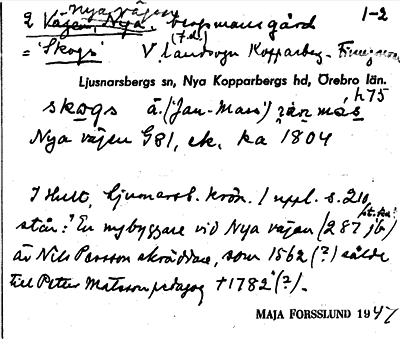 nya väjen 1-2
2 Vägen, Nya, bergsmansgård
(f.d.)
= 'Skogs' V. Landsvgn Kopparberg -
Ljusnarsbergs sn, Nya Kopparbergs hd, Örebro län.
h75
skogs å. (Jan-Mass')
Nya väjen G81, ek. ka 1804
I Hult, Ljusnarsb. krön. I uppl. s. 210
står: "En nybyggare vid Nya väjen (287 jb)
är Nils Persson skräddare, som 1562 (?) sålde
till Petter Matsson pedagog †1782" (?).
MAJA FORSSLUND 1947